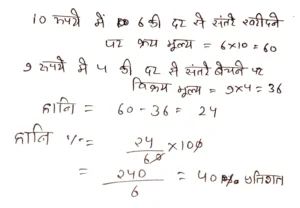 10 रुपये में 6 की दर से संतरे खरीदने
पर क्रय मूल्य = 6×10 = 60
9 रुपये में 4 की दर से संतरे बेचने पर
विक्रय मूल्य = 9×4 = 36
हानि = 60 - 36 = 24
हानि % = 24/60 × 100
= 240/6 = 40 % प्रतिशत